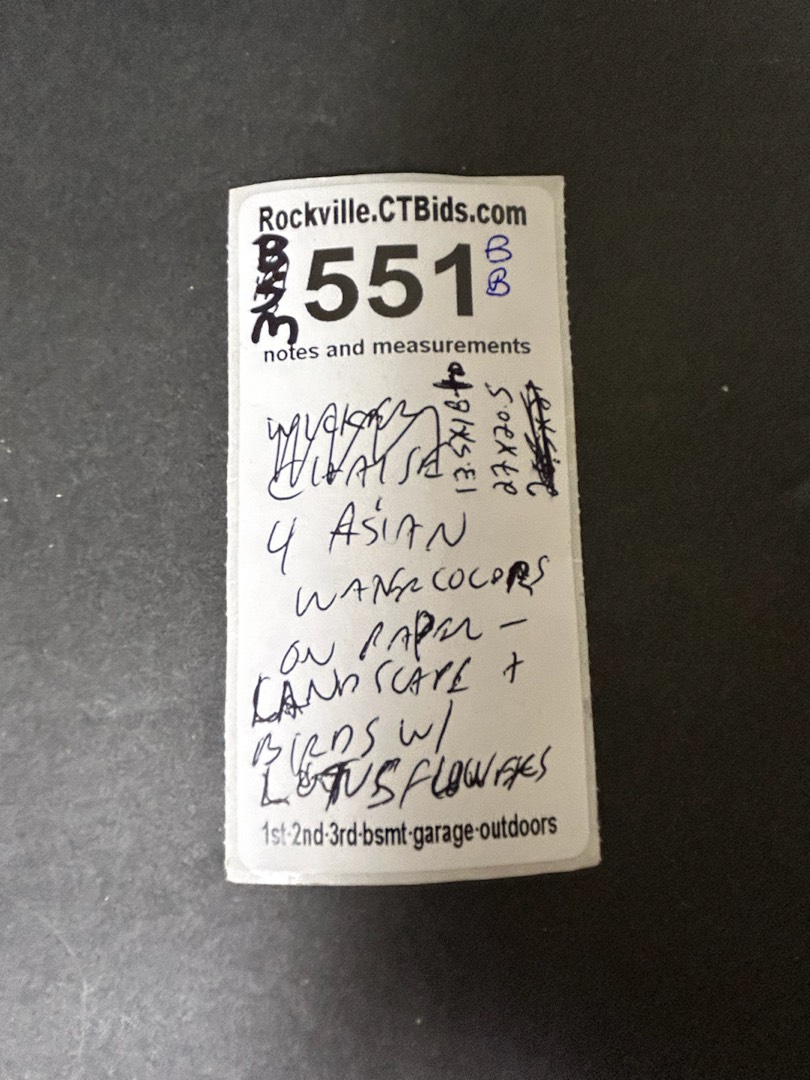 Rockville.CTBids.com
551
B
B
notes and measurements
13.5X18
27X20.5
4 ASIAN
WATERCOLORS
ON PAPER -
LANDSCAPE +
BIRDS W/
LOTUS FLOWERS
1st-2nd-3rd-bsmt-garage-outdoors